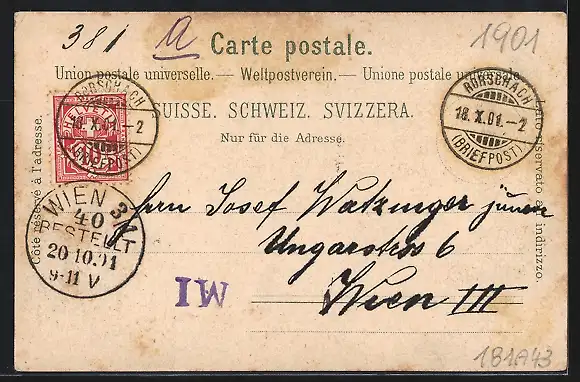 381 A Carte postale. 1901
Union postale universelle. — Weltpostverein. — Unione postale universale
SUISSE. SCHWEIZ. SVIZZERA.
Nur für die Adresse.
Côté réservé à l'adresse.
Lato riservato all' indirizzo.
RORSCHACH
18.X.01.-2
(BRIEFPOST)
RORSCHACH
18.X.01.-2
(BRIEFPOST)
HELVETIA
WIEN 3/1
40
BESTELLT
20.10.01
9-11 V
Herrn Josef Watzinger
Ungarstrss 6
Wien III
IM
181A43